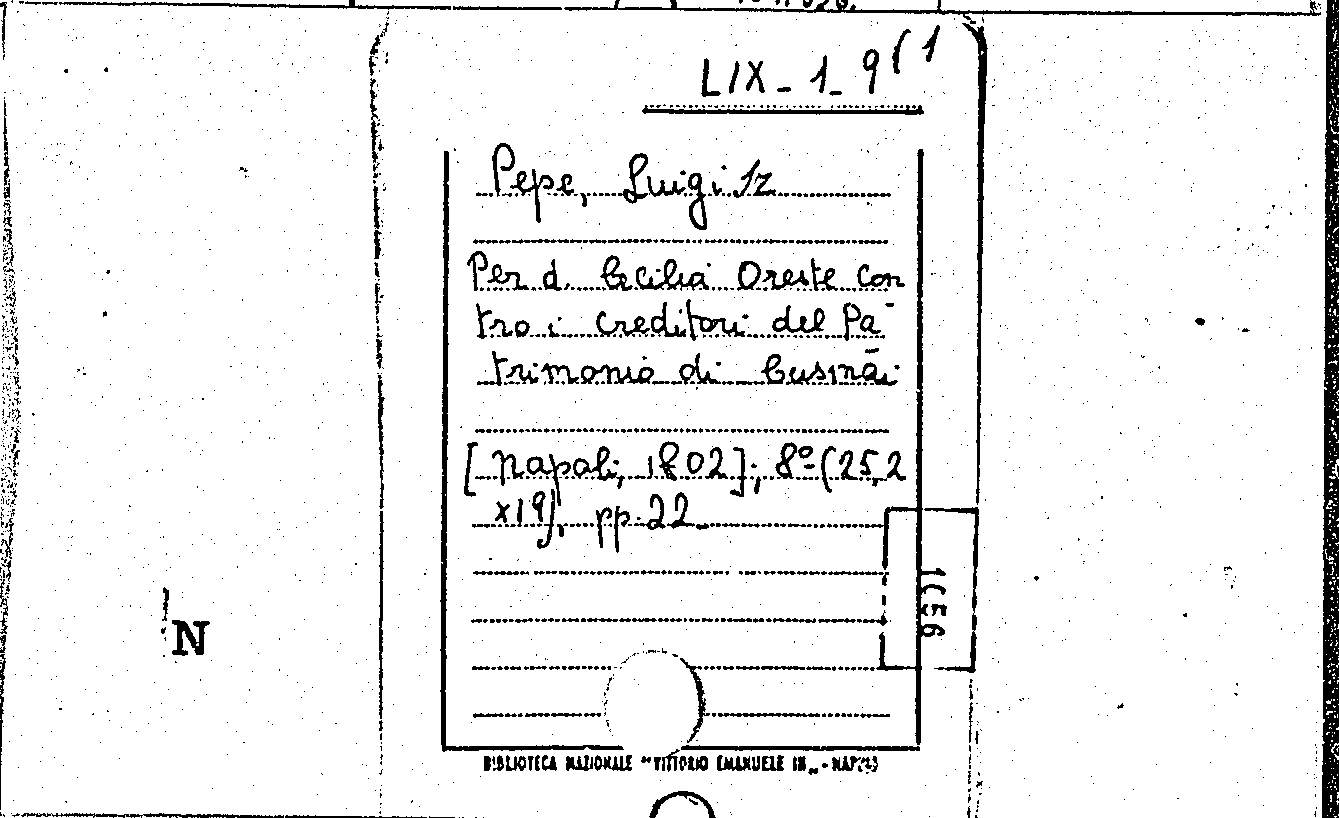 LIX - 1 - 9 (1
Pepe, Luigi Sz
Per d. Cecilia Oreste con
tro i creditori del Pa
trimonio di Cusmāi
[Napoli, 1802]; 8º (25,2
x19), pp. 22.
1(56
N
BIBLIOTECA NAZIONALE "VITTORIO EMANUELE III„ - NAPOLI